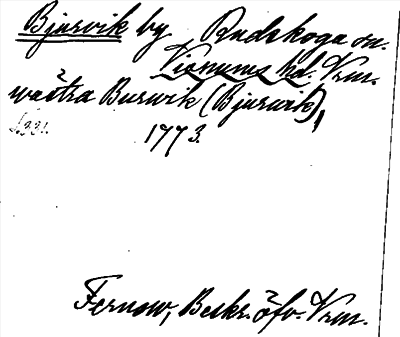 Bjurvik by Rudskoga sn.
Visnums hd. Vrm.
wästra Burwik (Bjurwik),
s. 331. 1773.
Fernow, Beskr. öfv. Vrm.